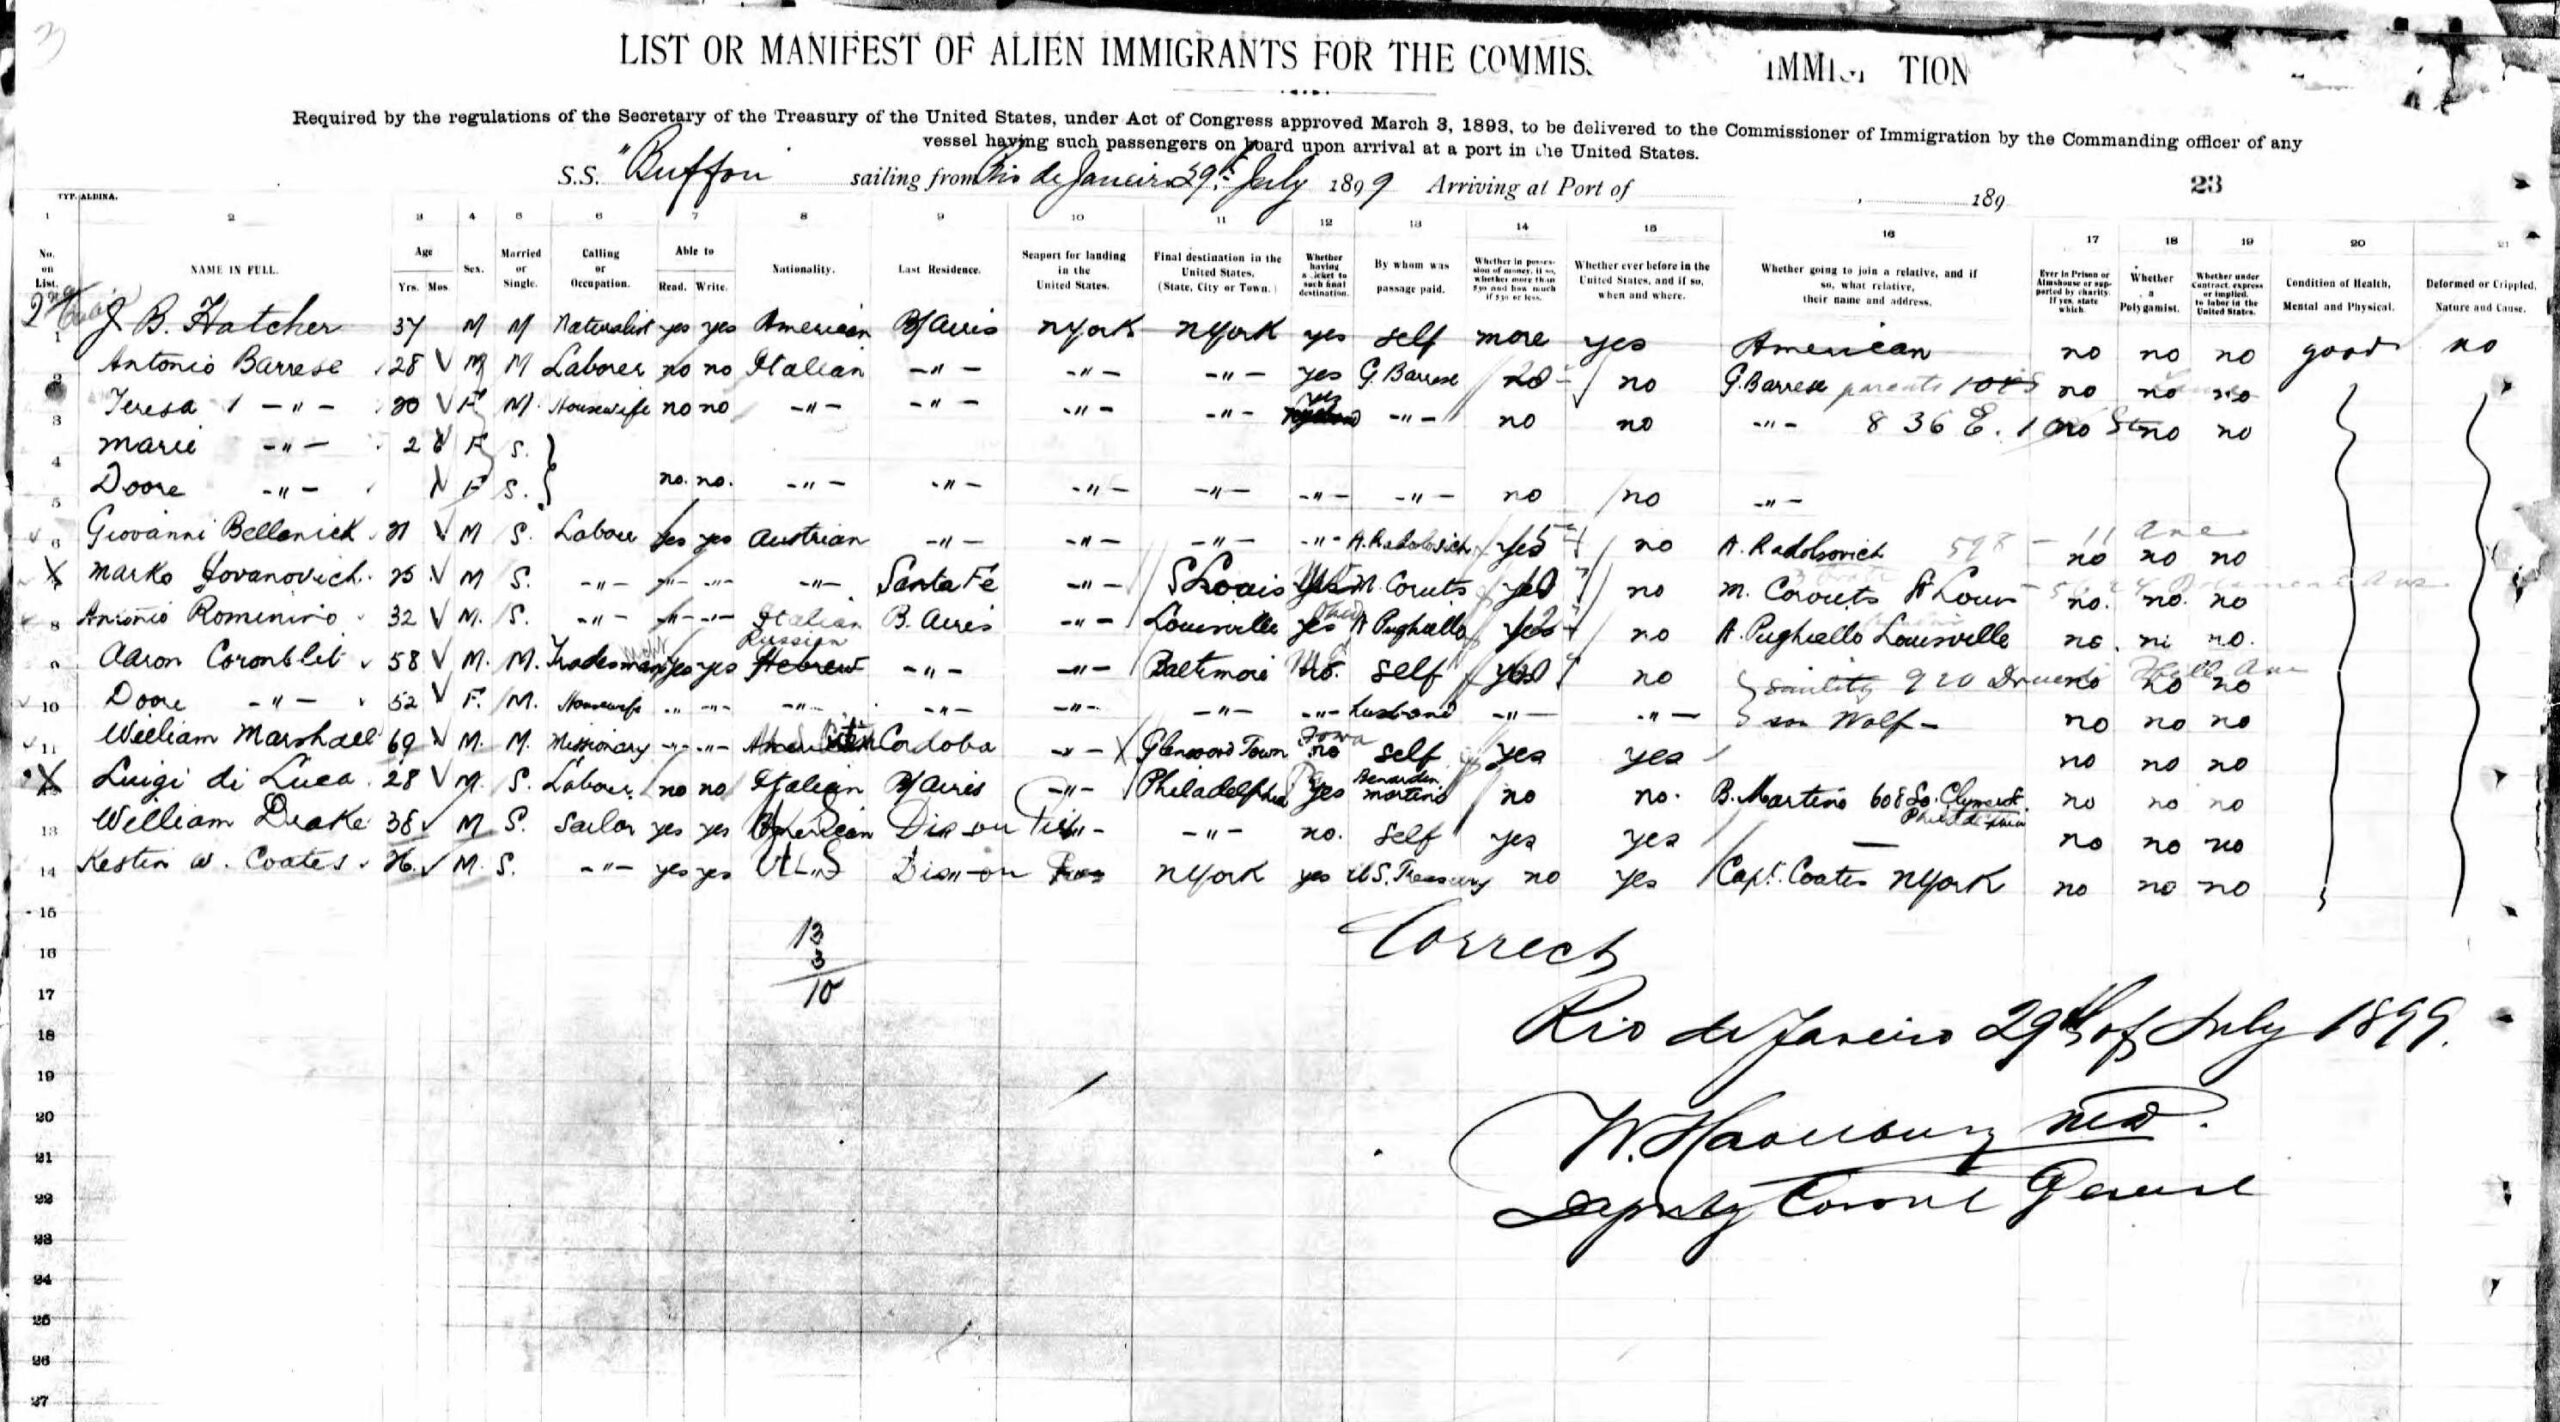 LIST OR MANIFEST OF ALIEN IMMIGRANTS FOR THE COMMIS IMMI TION
Required by the regulations of the Secretary of the Treasury of the United States, under Act of Congress approved March 3, 1893, to be delivered to the Commissioner of Immigration by the Commanding officer of any
vessel having such passengers on board upon arrival at a port in the United States.
S.S. "Buffon" sailing from Rio de Janeiro 29th July 1899 Arriving at Port of , 189
23
TYP. ALDINA.
1 2 3 4 5 6 7 8 9 10 11 12 13 14 15 16 17 18 19 20 21
No. on List.
NAME IN FULL.
Age Yrs. Mos.
Sex.
Married or Single.
Calling or Occupation.
Able to Read. Write.
Nationality.
Last Residence.
Seaport for landing in the United States.
Final destination in the United States. (State, City or Town.)
Whether having a ticket to such final destination.
By whom was passage paid.
Whether in possession of money, if so, whether more than $30 and how much if $30 or less.
Whether ever before in the United States, and if so, when and where.
Whether going to join a relative, and if so, what relative, their name and address.
Ever in Prison or Almshouse or supported by charity. If yes, state which.
Whether a Polygamist.
Whether under Contract, express or implied, to labor in the United States.
Condition of Health, Mental and Physical.
Deformed or Crippled, Nature and Cause.
1 J B. Hatcher 37 M M Naturalist yes yes American B/Aires NYork NYork yes self more yes American no no no good no
2 Antonio Barrese 28 M M Laborer no no Italian -"- -"- -"- yes G. Barrese no G. Barrese parents no no no
3 Teresa -"- 20 F M. Housewife no no -"- -"- -"- -"- yes -"- no no -"- 836 E. no no no
4 Marie -"- 2 F S.
5 Doore -"- F S. no. no. -"- -"- -"- -"- -"- -"- no no -"-
6 Giovanni Bellenich 21 M S. Labour yes yes Austrian -"- -"- -"- -"- A. Radolovich yes no A. Radolsovich 598 - 11 Ave no no no
7 Marko Jovanovich. 25 M S. -"- -"- -"- -"- Santa Fé -"- S Louis M. Coruts no M. Corouts St Louis no. no. no
8 Antonio Rominiro 32 M. S. -"- -"- -"- Italian B. Aires -"- Louisville yes A Pughiello yes no A. Pughiello Louisville no. ni no.
9 Aaron Coronblit 58 M. M. Tradesman yes yes Russian Hebrew -"- -"- Baltimore no. self no 920 no no
10 Doore -"- 52 F. M. Housewife -"- -"- -"- -"- -"- -"- -"- husband -"- -"- son Wolf - no no no
11 William Marshall 69 M. M. Missionary -"- -"- Cordoba -"- Glenwood Town Iowa no self yes yes no no no
12 Luigi di Luca 28 M. S. Labour. no no Italian B/Aires -"- Philadelphia Pa yes Martino no no. B. Martino 608 So. Clymer St. Philadelphia no no no
13 William Drake 38 M S. Sailor yes yes American -"- -"- no. self yes yes — no no no
14 Kestin W. Coates. 26. M. S. -"- yes yes U.S NYork yes U.S. Treasury no yes Capt. Coates NYork no no no
15
16
17
18
19
20
21
22
23
24
25
26
27
13
3
10
Correct
Rio de Janeiro 29th of July 1899.
W. Havelburg MD.
Deputy Consul General